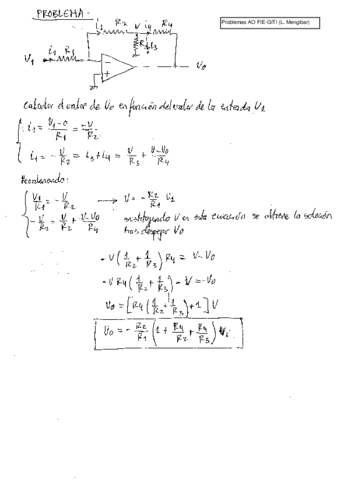 PROBLEMA.
Problemas AO F/E-GITI (L. Mengibar)
i1 R2 V i4 R4
R3 i3
V1 i1 R1
V0
Calcular el valor de V0 en función del valor de la entrada V1
i1 = V1-0/R1 = -V/R2
i1 = -V/R2 = i3+i4 = V/R3 + V-V0/R4
Reordenando:
V1/R1 = -V/R2 → V = -R2/R1 V1
-V/R2 = V/R3 + V-V0/R4 sustituyendo V en esta ecuación se obtiene la solución
tras despejar V0
-V(1/R2 + 1/R3)R4 = V-V0
-V R4(1/R2 + 1/R3) - V = -V0
V0 = [R4(1/R2 + 1/R3) + 1] V
V0 = -R2/R1 (1 + R4/R2 + R4/R3) Vi